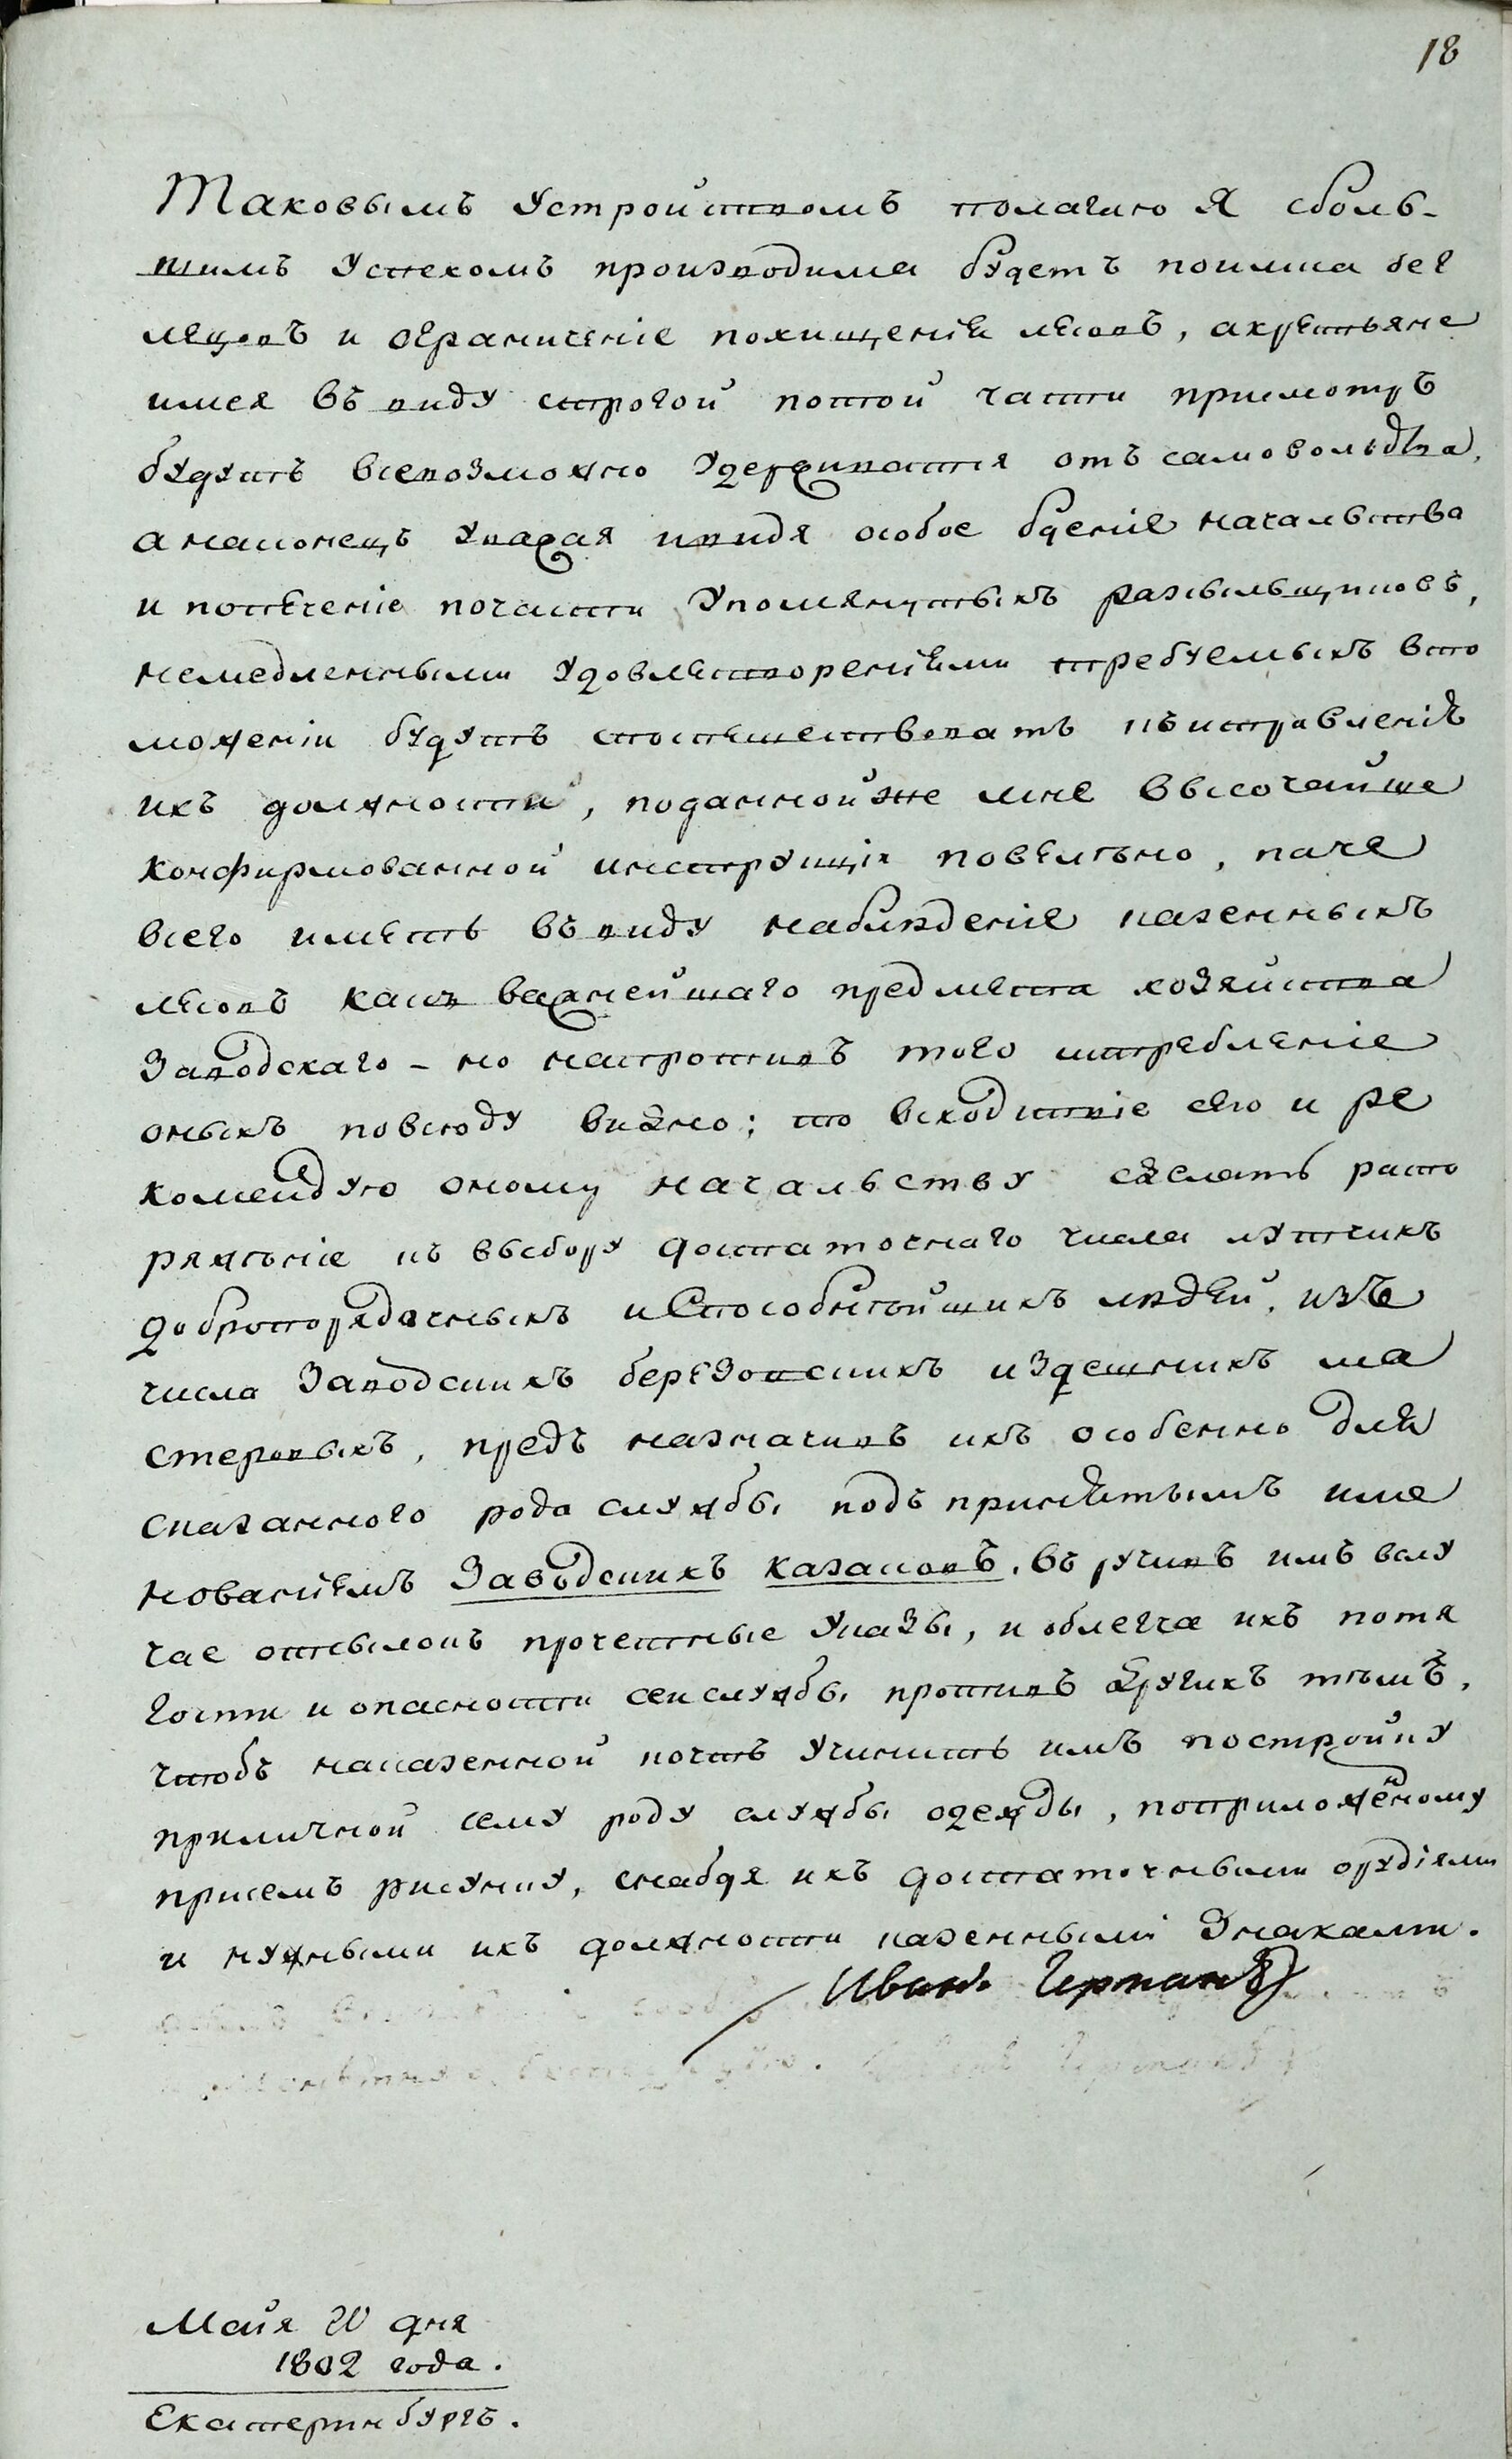 18
Таковымъ устройствомъ полагаю я сболь-
шимъ успехомъ производима будетъ поимка бег
лецовъ и ограниченіе похищенія лесовъ, акрестьяне
имея въ виду строгой потой части присмотръ
будутъ всевозможно удерживатся отъ самовольства,
анаконецъ уважая ивидя особое бденіе начальства
и попеченіе почасти упомянутыхъ разсыльщиковъ,
немедленными удовлетвореніями требуемыхъ впо
можении будутъ споспешествовать къ исправленію
ихъ должности, поданной же мне высочайше
конфирмованной инструкціи повелѣно, паче
всего иметь въ виду наблюденіе казенныхъ
лесовъ какъ важнейшаго предмета хозяйства
Заводскаго – но напротивъ того истребленіе
оныхъ повсюду видно; то всходствіе сего и ре
комендую оному начальству сделать распо
ряженіе къ выбору достаточнаго числа лутчихъ
добропорядочныхъ и способнейшихъ людей, изъ
числа Заводскихъ березовскихъ издешнихъ ма
стеровыхъ, предъ назначивъ ихъ особенно для
сказанного рода службы подъ принятымъ име
нованіемъ Заводскихъ казаковъ, въручивъ имъ вслу
чае отсылокъ прочетные указы, и облегча ихъ потя
гости и опасности сей службы противъ другихъ тѣмъ,
чтобъ наказенной кочтъ учинить имъ постройку
приличной сему роду службы одежды, поприложенному
присемъ рисунку, снабдя ихъ достаточными орудіями
и нужными ихъ должности казенными знаками.
Иванъ Германъ
Майя 20 дня
1802 года.
Екатеринбургъ.